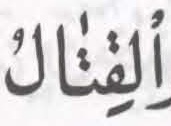 ٱلۡقِتَالُ